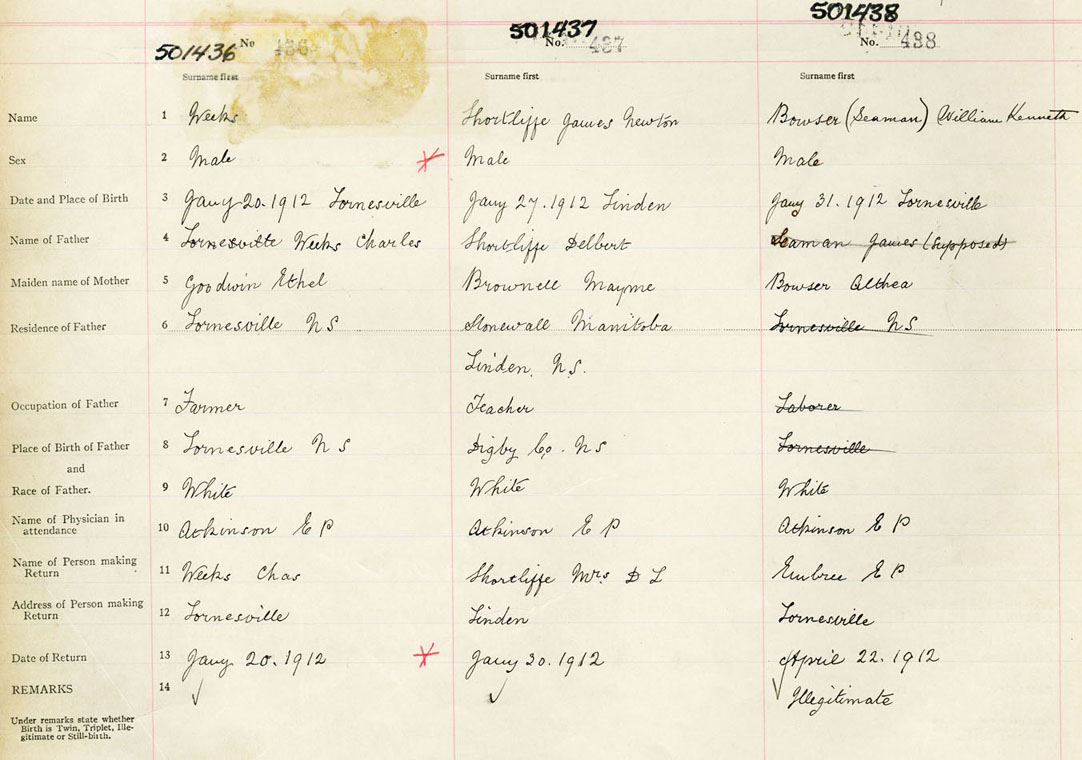 501436 No 436 501437 No. 437 501438 No. 438
Surname first Surname first Surname first
Name 1 Weeks Shortliffe James Newton Bowser (Seaman) William Kenneth
Sex 2 Male Male Male
Date and Place of Birth 3 Jany 20.1912 Lornesville Jany 27.1912 Linden Jany 31.1912 Lornesville
Name of Father 4 Lornesville Weeks Charles Shortliffe Delbert Seaman James (Supposed)
Maiden name of Mother 5 Goodwin Ethel Brownell Mayme Bowser Althea
Residence of Father 6 Lornesville NS Stonewall Manitoba Lornesville NS
Linden, N.S.
Occupation of Father 7 Farmer Teacher Laborer
Place of Birth of Father 8 Lornesville NS Digby Co. NS Lornesville
and
Race of Father. 9 White White White
Name of Physician in attendance 10 Atkinson E P Atkinson E P Atkinson E P
Name of Person making Return 11 Weeks Chas Shortliffe Mrs D L Embree E P
Address of Person making Return 12 Lornesville Linden Lornesville
Date of Return 13 Jany 20.1912 Jany 30.1912 April 22.1912
REMARKS 14 ✓ ✓ ✓ Illegitimate
Under remarks state whether
Birth is Twin, Triplet, Ille-
gitimate or Still-birth.